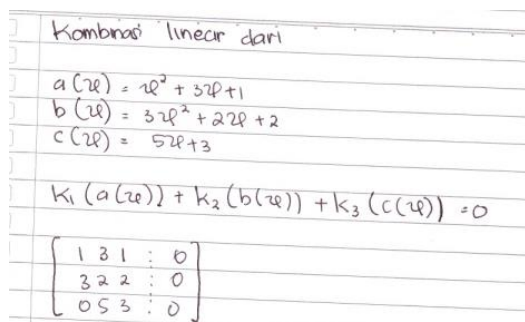 Kombinasi linear dari
a(x) = x² + 3x+1
b(x) = 3x² + 2x + 2
c(x) = 5x+3
K₁ (a(x)) + K₂ (b(x)) + K₃ (c(x)) = 0
[ 1 3 1 : 0 ]
[ 3 2 2 : 0 ]
[ 0 5 3 : 0 ]